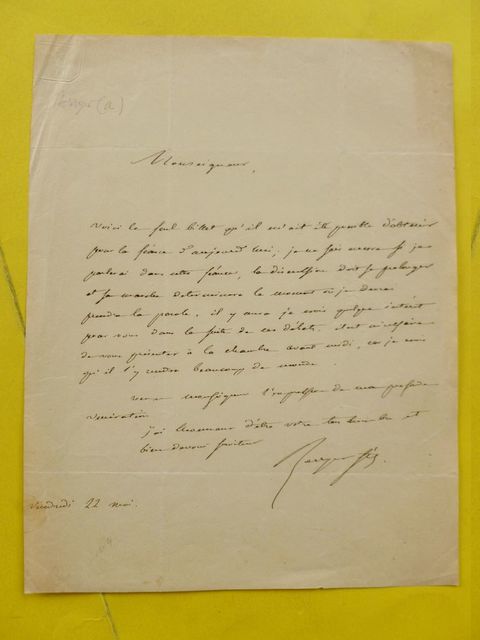 Monseigneur,
voici le seul billet qu'il m'ait été possible d'obtenir
pour la séance d'aujourd'hui; je ne sais encore si je
parlerai dans cette séance, la discussion doit se prolonger
et sa marche déterminera le moment où je devrai
prendre la parole. il y aura je crois quelque intérêt
pour vous dans la suite de ces débats, il est nécessaire
de vous présenter à la chambre avant midi, car je crois
qu'il s'y rendra beaucoup de monde.
Monseigneur l'expression de ma profonde
vénération
j'ai l'honneur d'être votre très humble et
bien dévoué serviteur
Berryer fils
Vendredi 22 mai.